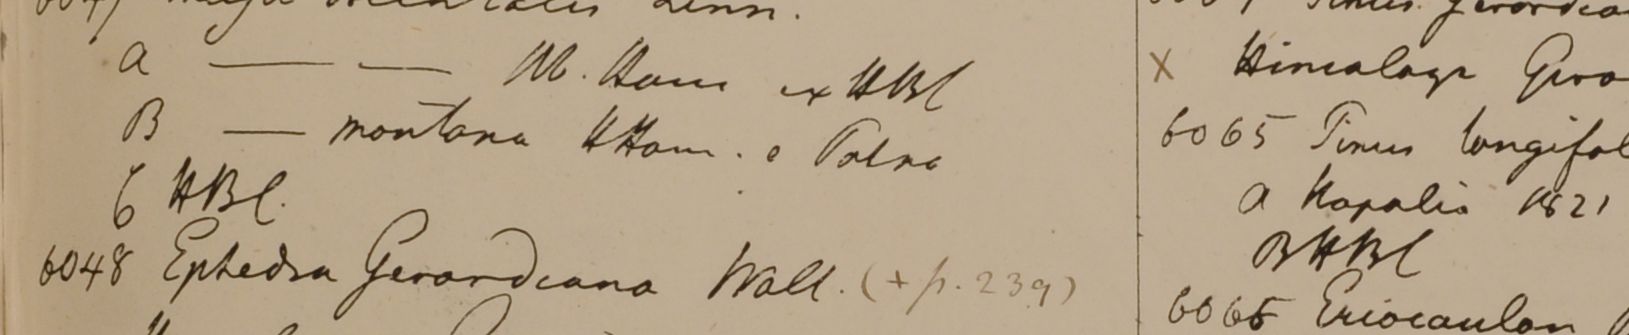 6047 Linn.
a — — M. Ham ex HBC
B — montana HHam. e Patna
C HBC.
6048 Ephedra Gerardiana Wall. (+ p. 239)
Pinus Gerardia
x Himalaya Gova
6065 Pinus longifol
a Napalia 1821
B HBC
6066 Eriocaulon